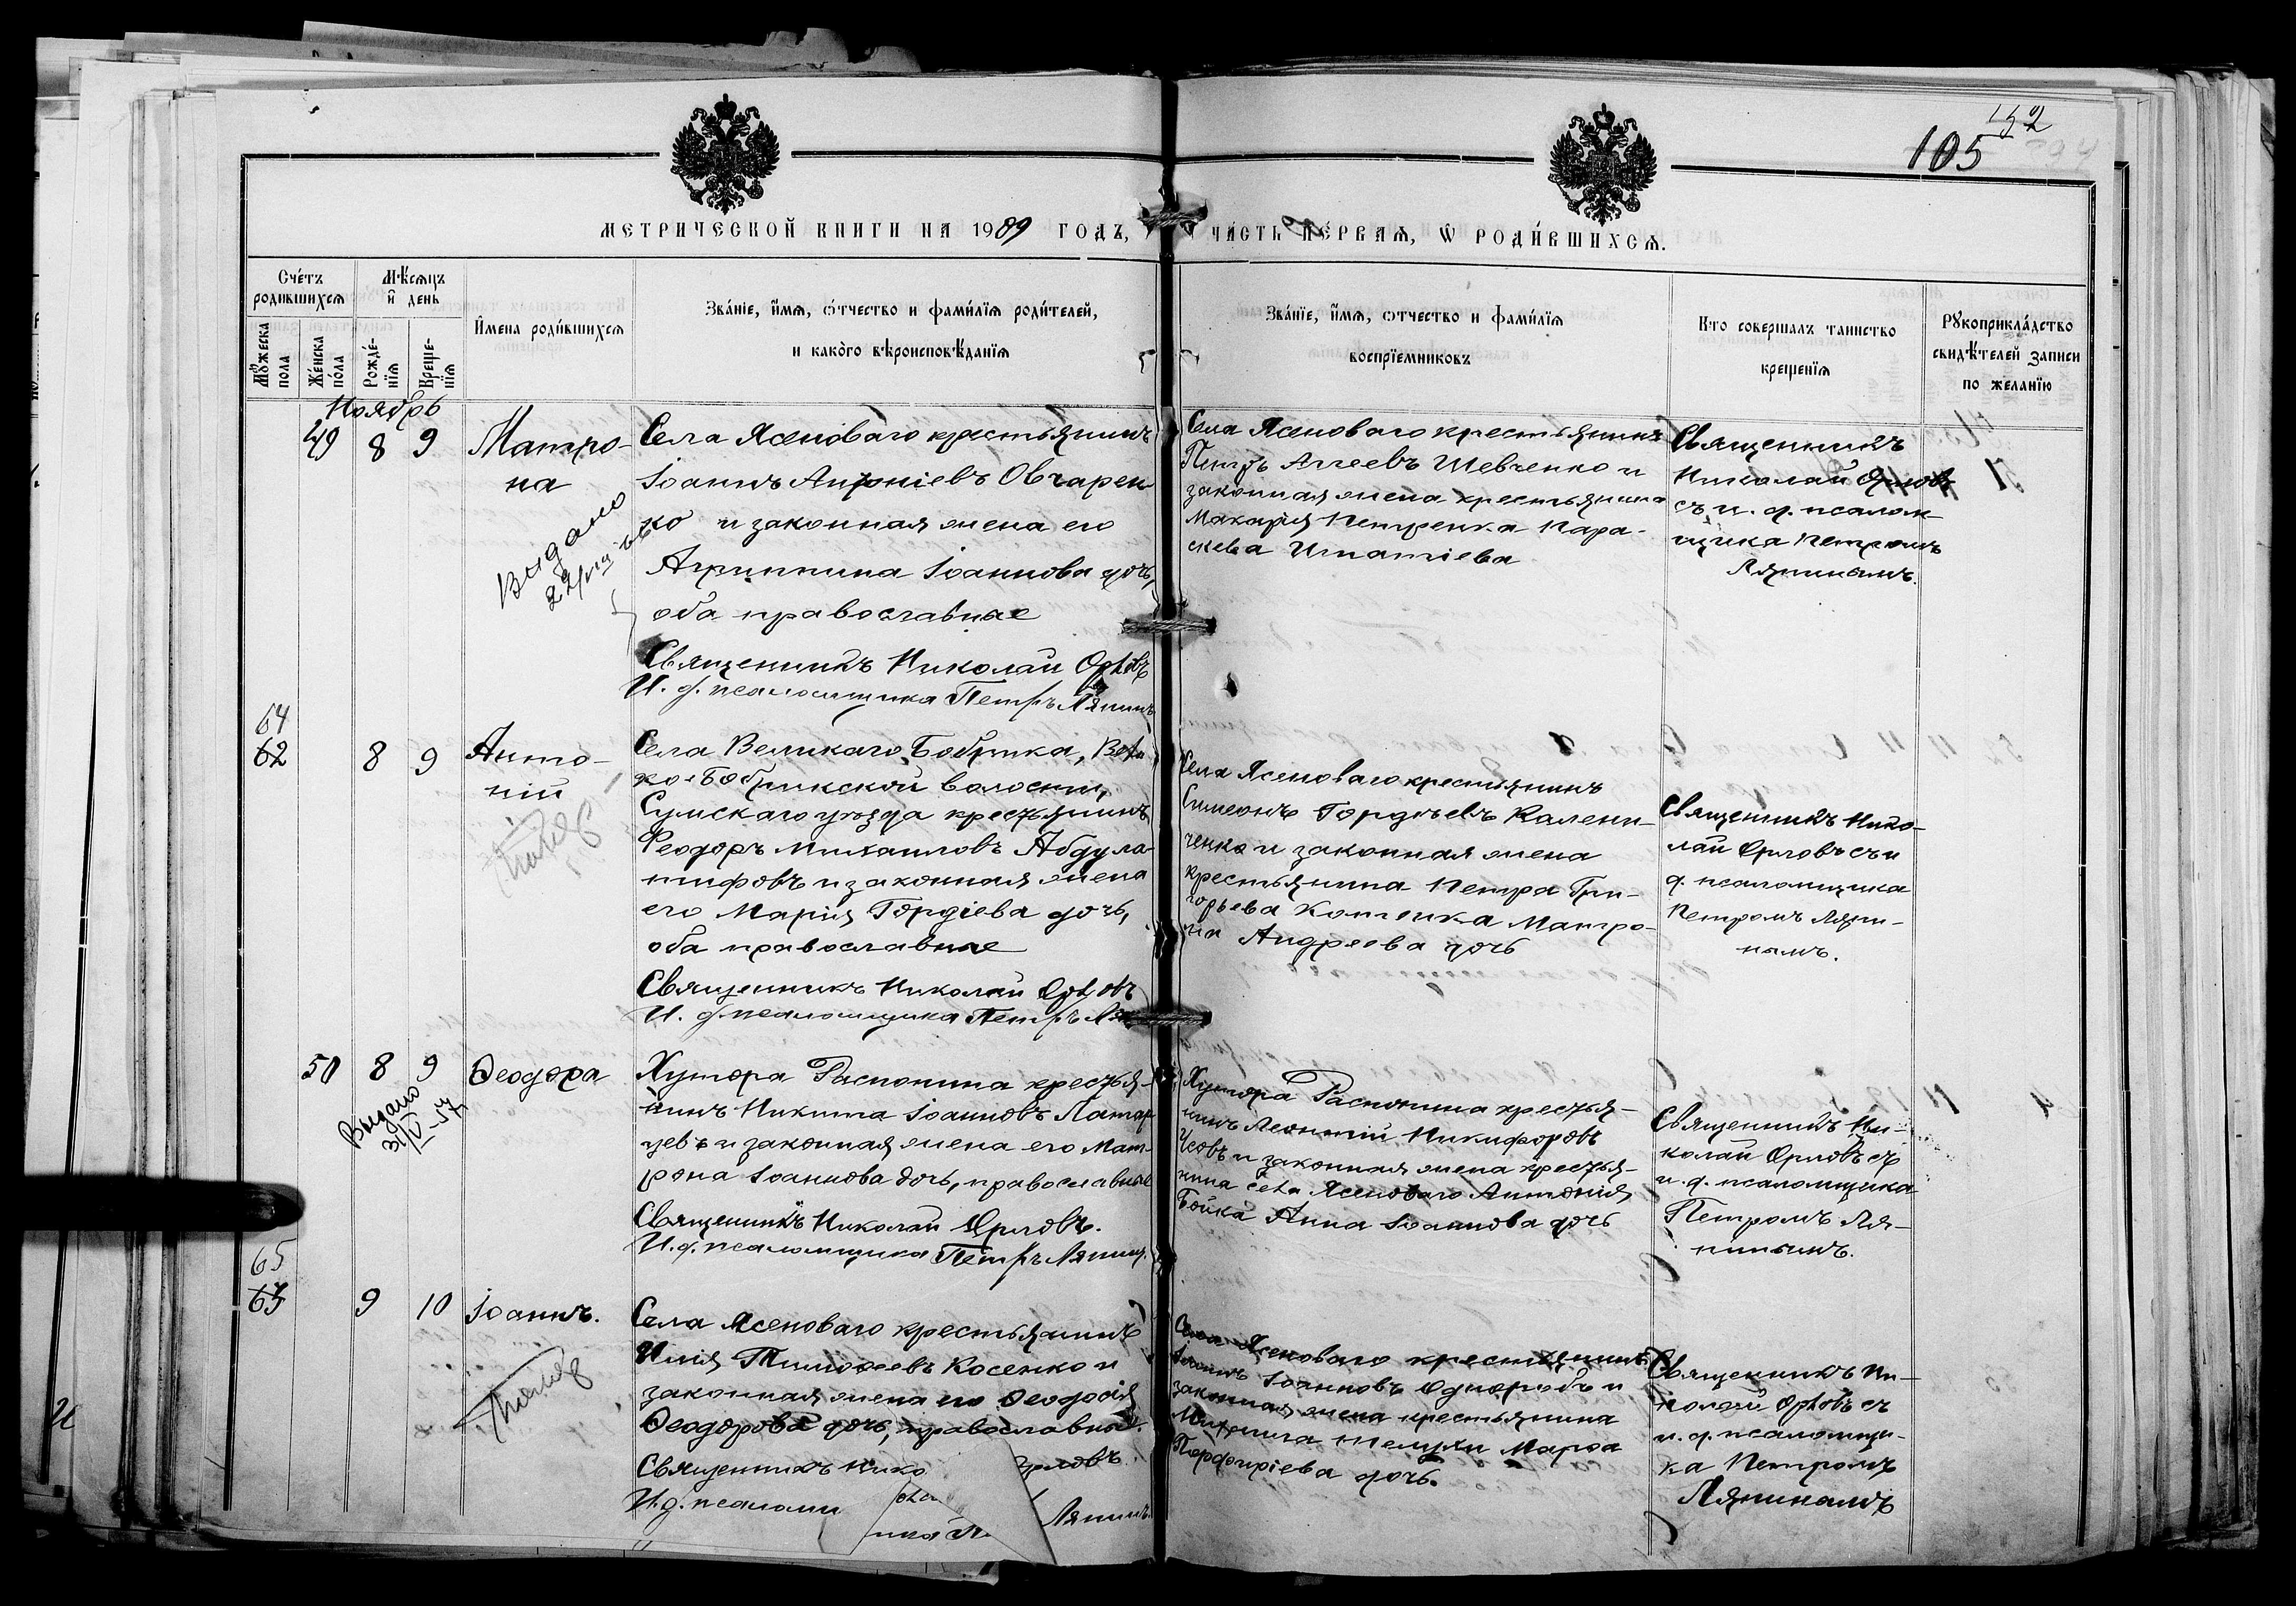 152
105
МЕТРИЧЕСКОЙ КНИГИ НА 1909 ГОДЪ,
ЧАСТЬ ПЕРВАЯ, Ѡ РОДИ́ВШИХСЯ.
Сче́тъ родившихся
Мѣсяцъ и҆ день
Мꙋжеска пола
Же́нска по́ла
Рожде́нїя
Креще́нїя
И҆мена роди́вшихся
Зва́нїе, и҆́мя, ѻ҆́тчество и фами́лїя роди́телей,
и како́го вѣроисповѣ́данїя
Зва́нїе, и҆́мя, ѻ҆тчество и фами́лїя
воспрїемниковъ
Кто совершалъ таинство
крещенїя
Рꙋкоприкла́дство
свидѣ́телей записи
по жела́нїю
Ноябрь
49 8 9
Матро-
на
Выдано
Села Ясеноваго крестьянинъ
Іоаннъ Антоніевъ Овчарен
ко и законная жена его
Агриппина Іоаннова дочь,
оба православные
Священникъ Николай Орловъ
И. д. псаломщика Петръ Ляпинъ
Села Ясеноваго крестьянинъ
Петръ Аггеевъ Шевченко и
законная жена крестьянина
Макарія Петренка Пара-
скева Игнатіева
Священникъ
Николай Орловъ
съ и. д. псалом-
щика Петромъ
Ляпинымъ.
64
62 8 9
Анто-
ній
Села Великаго Бобрика, Вели
ко-Бобрикской волости,
Сумскаго уѣзда крестьянинъ
Феодоръ Михаиловъ Абдула-
тифовъ и законная жена
его Марія Гордіева дочь,
оба православные
Священникъ Николай Орловъ
И. д. псаломщика Петръ Ляп
Села Ясеноваго крестьянинъ
Симеонъ Гордѣевъ Калени-
ченко и законная жена
крестьянина Петра Гри-
горьева Матро-
на Андреева дочь
Священникъ Нико-
лай Орловъ съ и
д. псаломщика
Петромъ Ляпи-
нымъ.
50 8 9
Ѳеодора
Выдано
31/V-57
Хутора Распопина крестья-
нинъ Никита Іоанновъ Латар
цевъ и законная жена его Мат-
рона Іоаннова дочь, православные
Священникъ Николай Орловъ.
И. д. псаломщика Петръ Ляпин.
Хутора Распопина крестья-
нинъ Леонтій Никифоровъ
Чсовъ и законная жена крестья-
нина села Ясеноваго Антонія
Бойка Анна Іоаннова дочь
Священникъ Ни-
колай Орловъ съ
и. д. псаломщика
Петромъ Ля-
пинымъ.
65
63 9 10
Іоаннъ.
Села Ясеноваго крестьянинъ
Илія Тимоѳеевъ Косенко и
законная жена его Ѳеодосія
Ѳеодорова дочь, православные.
Священникъ Нико рловъ
И. д. псаломщ Ляпинъ.
Села Ясеноваго крестьянинъ
Іоаннъ Іоанновъ Одноробъ и
законная жена крестьянина
Митрофана Марѳа
Порфиріева дочь.
Священникъ Ни-
колай Орловъ съ
и. д. псаломщи-
ка Петромъ
Ляпинымъ